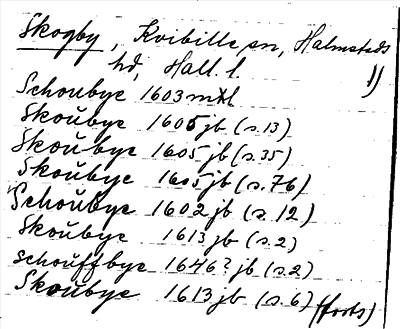 Skogby, Kvibille sn, Halmstads
hd, Hall. l. 1)
Schoubye 1603 mtl
Skoŭbye 1605 jb (s. 13)
Skoŭbye 1605 jb (s. 35)
Skoŭbye 1605 jb (s. 76)
Schoŭbye 1602 jb (s. 12)
Skoŭbye 1613 jb (s. 2)
Schoŭffbye 1646? jb (s. 2)
Skoŭbye 1613 jb (s. 6)
(forts)